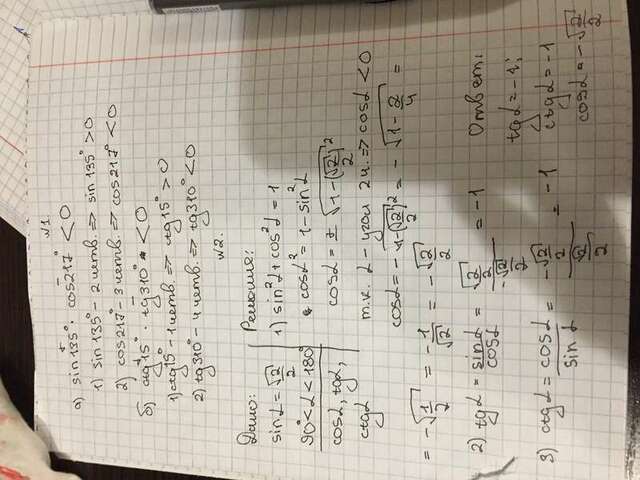 №1
а) sin135° · cos217° < 0
1) sin135° - 2 четв. => sin135° > 0
2) cos217° - 3 четв. => cos217° < 0
б) ctg15° · tg310° < 0
1) ctg15° - 1 четв. => ctg15° > 0
2) tg310° - 4 четв. => tg310° < 0
№2.
Дано:
sin α = √2/2
90° < α < 180°
cos α, tg α,
ctg α
Решение:
1) sin²α + cos²α = 1
cos α² = 1 - sin²α
cos α = ± √1-(√2/2)²
т.к. α - угол 2 ч. => cos α < 0
cos α = - √1-(√2/2)² = - √1-2/4 =
= -√1/2 = -1/√2 = -√2/2
2) tg α = sin α/cos α = √2/2 / -√2/2 = -1
3) ctg α = cos α/sin α = -√2/2 / √2/2 = -1
Ответ:
tg α = -1;
ctg α = -1
cos α = -√2/2